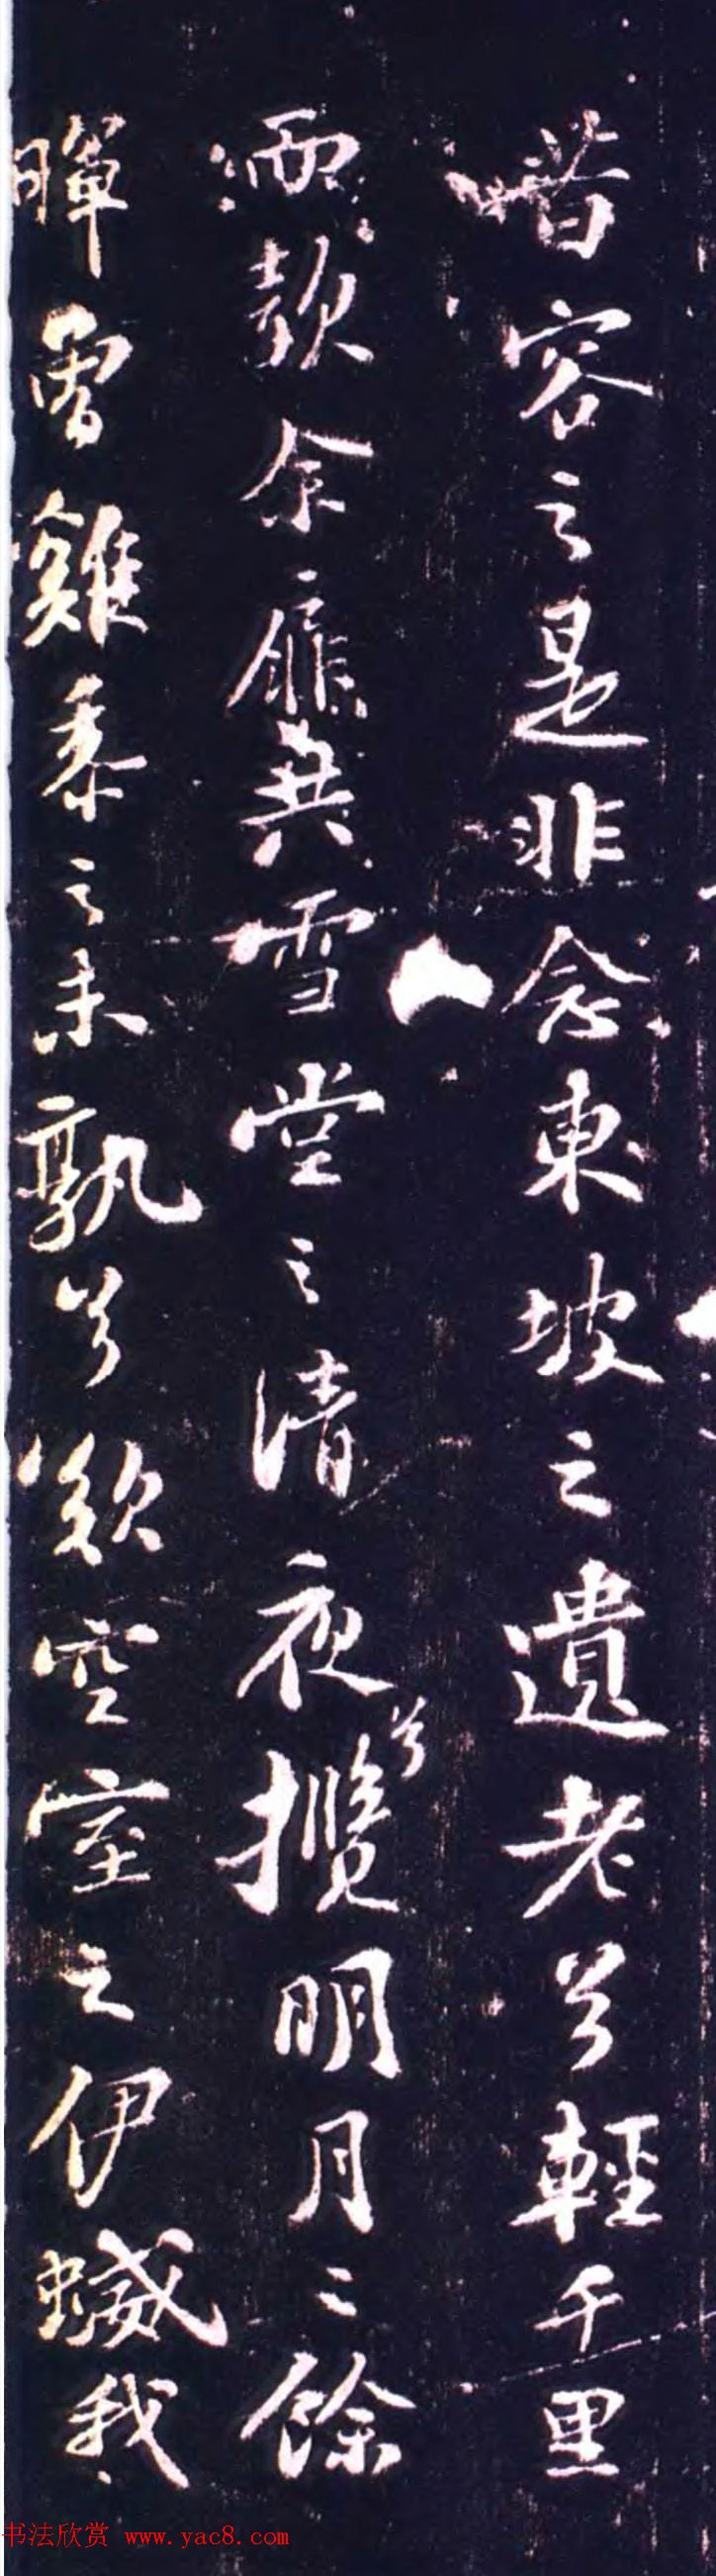 昔容之是非念東坡之遺老兮輕千里
而款余扉共雪堂之清夜兮攬明月之餘
暉曾雞黍之未孰兮歎空室之伊蝛我
书法欣赏 www.yac8.com